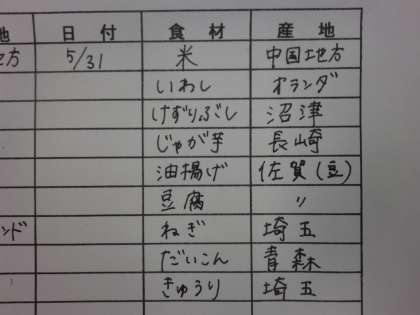 地 日付 食材 産地
地方 5/31 米 中国地方
いわし オランダ
けずりぶし 沼津
じゃが芋 長崎
油揚げ 佐賀(豆)
豆腐 〃
ンド ねぎ 埼玉
だいこん 青森
きゅうり 埼玉